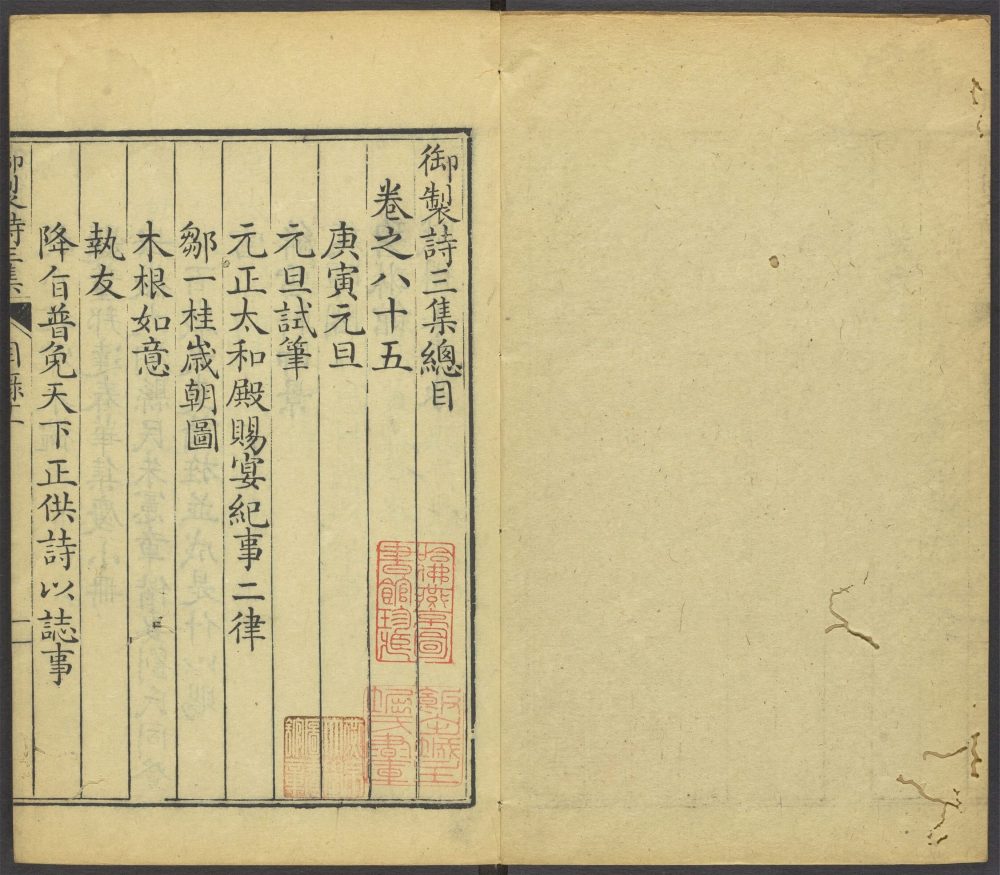 御製詩三集總目
卷之八十五
庚寅元旦
元旦試筆
元正太和殿賜宴紀事二律
鄒一桂歲朝圖
木根如意
執友
降旨普免天下正供詩以誌事
御製詩三集
目錄
哈佛燕京圖
書館珍藏